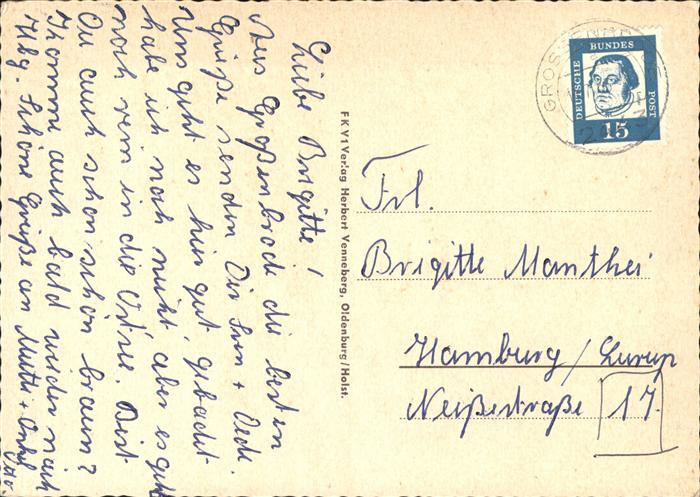 Liebe Brigitte!
Aus Großenbrode die besten
Grüße senden Dir Sven + Oede.
Uns geht es hier gut, gebadet
habe ich noch nicht aber es geht
noch rein in die Ostsee. Bist
Du auch schon schön braun?
Komme auch bald wieder nach
Hbg. Schöne Grüße an Mutti + Onkel
Otto.
FKV1 Verlag Herbert Venneberg, Oldenburg/Holst.
GROSSENBRODE
DEUTSCHE BUNDES POST
15
Frl.
Brigitte Manthei
Hamburg/Lurup
Neißestraße 17.